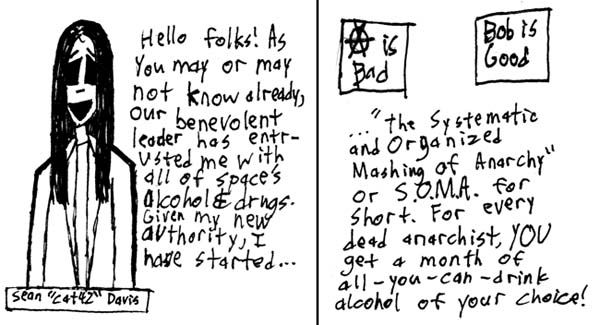 Hello folks! As
you may or may
not know already,
our benevolent
leader has entr-
usted me with
all of space's
alcohol & drugs.
Given my new
authority, I
have started...
Sean "cat42" Davis
Ⓐ is
Bad
Bob is
Good
..."the Systematic
and Organized
Mashing of Anarchy"
or S.O.M.A. for
short. For every
dead anarchist, YOU
get a month of
all-you-can-drink
alcohol of your choice!